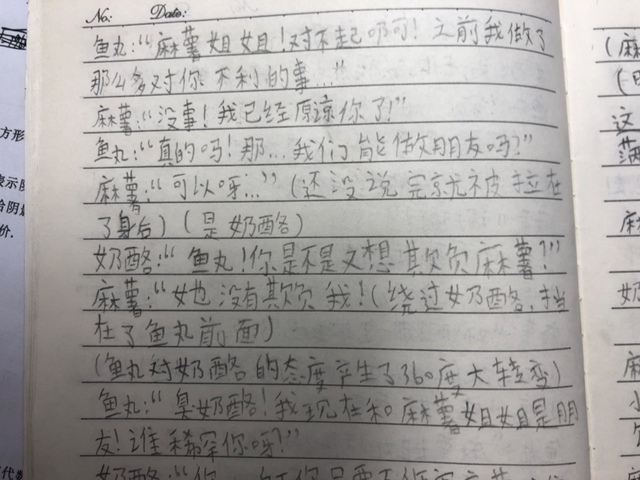 No:  Date:
鱼丸:“麻薯姐姐!对不起叨可! 之前我做了
那么多对你 不利的事...”
麻薯:“没事!我已经原谅你了!”
鱼丸:“真的吗!那...我们能做朋友吗?”
麻薯:“可以呀...” (还没说完就被拉在
了身后) (是奶酪)
奶酪:“鱼丸!你是不是又想欺负麻薯?”
麻薯:“她没有欺负我!(绕过奶酪,挡
在了鱼丸前面)
(鱼丸对奶酪的态度产生了360度大转变)
鱼丸:“臭奶酪!我现在和麻薯姐姐是朋
友!谁稀罕你呀?”
奶酪:“你
方形
表示
给阴
价.
代数
(麻
(
这
麻
奶
麻